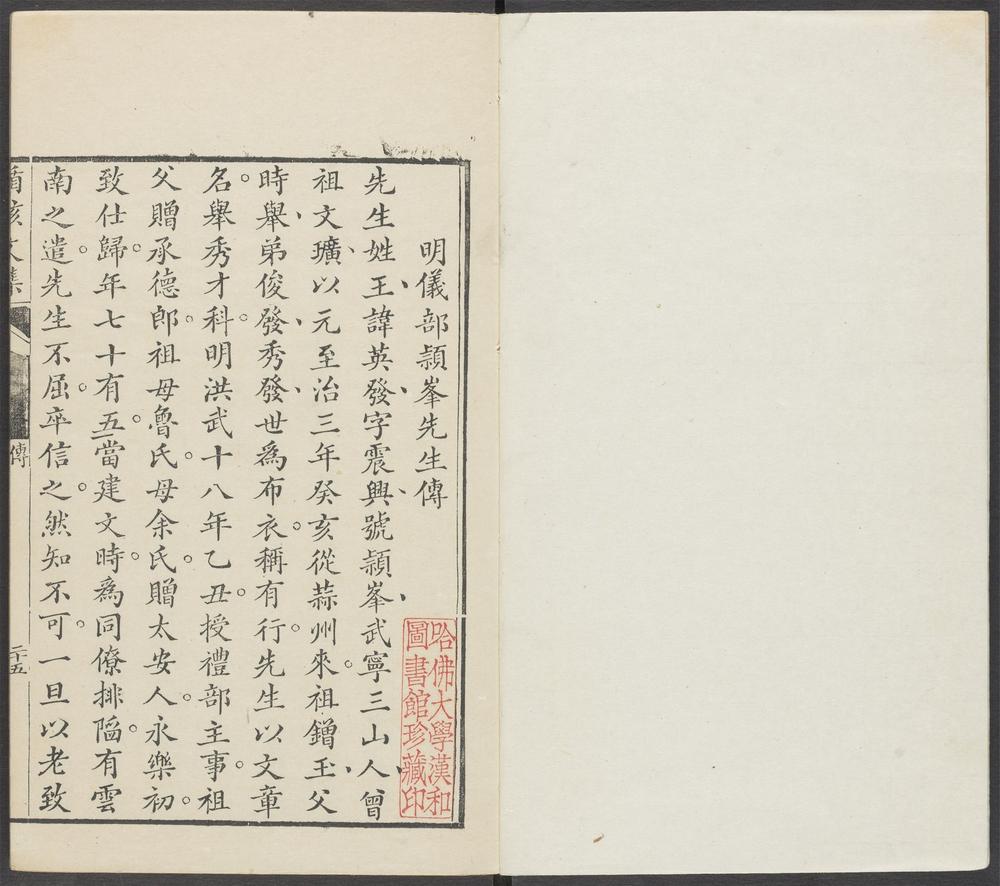 明儀部頴峯先生傳
先生姓王諱英發字震興號頴峯武寧三山人曾
祖文壙以元至治三年癸亥從蒜州來祖鏳玉父
時舉弟俊發秀發世爲布衣稱有行先生以文章
名舉秀才科明洪武十八年乙丑授禮部主事祖
父贈承德郎祖母魯氏母余氏贈太安人永樂初
致仕歸年七十有五當建文時爲同僚排陷有雲
南之遣先生不屈卒信之然知不可一旦以老致
文集
傳
二十五
哈佛大學漢和
圖書館珍藏印